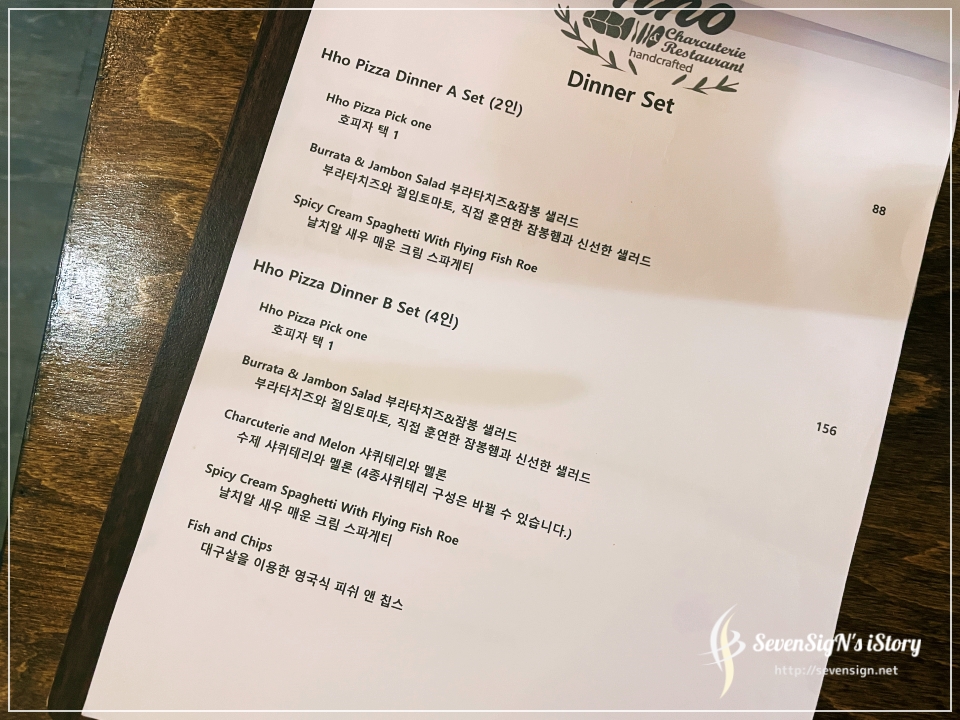 Hho
Charcuterie
Restaurant
handcrafted
Dinner Set
Hho Pizza Dinner A Set (2인)
88
Hho Pizza Pick one
호피자 택 1
Burrata & Jambon Salad 부라타치즈&잠봉 샐러드
부라타치즈와 절임토마토, 직접 훈연한 잠봉햄과 신선한 샐러드
Spicy Cream Spaghetti With Flying Fish Roe
날치알 새우 매운 크림 스파게티
Hho Pizza Dinner B Set (4인)
156
Hho Pizza Pick one
호피자 택 1
Burrata & Jambon Salad 부라타치즈&잠봉 샐러드
부라타치즈와 절임토마토, 직접 훈연한 잠봉햄과 신선한 샐러드
Charcuterie and Melon 샤퀴테리와 멜론
수제 샤퀴테리와 멜론 (4종사퀴테리 구성은 바뀔 수 있습니다.)
Spicy Cream Spaghetti With Flying Fish Roe
날치알 새우 매운 크림 스파게티
Fish and Chips
대구살을 이용한 영국식 피쉬 앤 칩스
SevenSigN's iStory
http://sevensign.net